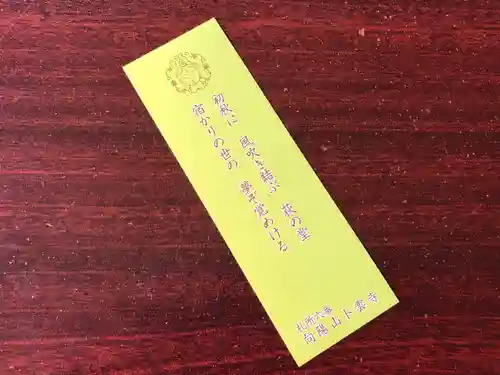 初秋に 風吹き結ぶ 荻の堂
宿かりの世の 夢ぞ覚めける
札所六番
向陽山卜雲寺